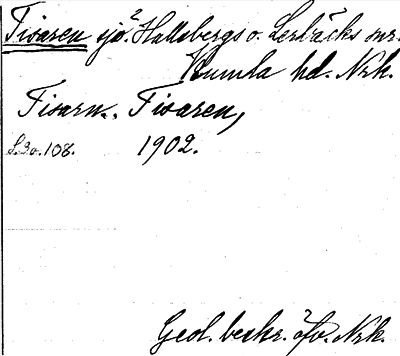 Tisaren sjö. Hallsbergs o. Lerbäcks snr.
Kumla hd. Nrk.
Tisarn. Tisaren,
S.30.108. 1902.
Geol. beskr. öfv. Nrk.